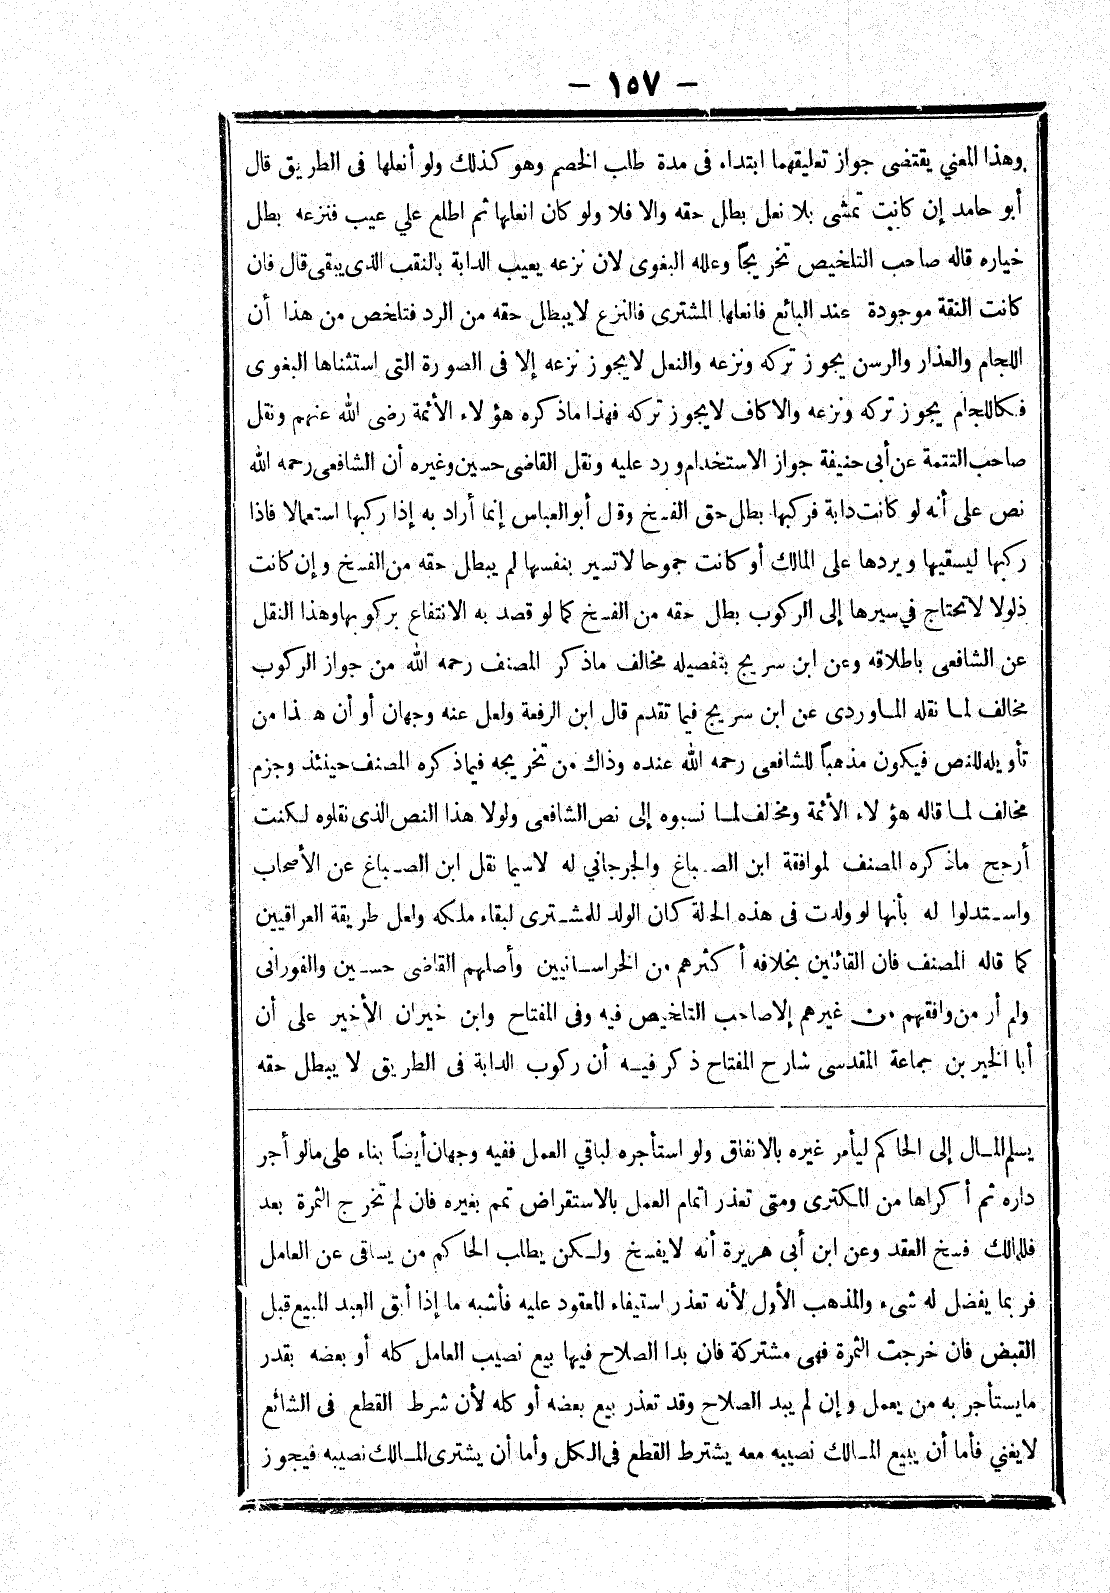 — ١٥٧ —
وهذا المعني يقتضى جواز تعليقهما ابتداء فى مدة طلب الخصم وهو كذلك ولو أنعلها فى الطريق قال
أبو حامد إن كانت تمشى بلا نعل بطل حقه والا فلا ولو كان انعلها ثم اطلع علي عيب فنزعه بطل
خياره قاله صاحب التلخيص تخريجاً وعلله البغوى لان نزعه يعيب الدابة بالنقب الذى يبقى قال فان
كانت النقبة موجودة عند البائع فانعلها المشترى فالنزع لايبطل حقه من الرد فتلخص من هذا أن
اللجام والعذار والرسن يجوز تركه ونزعه والنعل لايجوز نزعه إلا فى الصورة التى استثناها البغوى
فكاللجام يجوز تركه ونزعه والاكاف لايجوز تركه فهذا ماذكره هؤلاء الأئمة رضى الله عنهم ونقل
صاحب التتمة عن أبى حنيفة جواز الاستخدام ورد عليه ونقل القاضى حسين وغيره أن الشافعى رحمه الله
نص على أنه لو كانت دابة فركبها بطل حق الفسخ وقال أبو العباس إنما أراد به إذا ركبها استعمالا فاذا
ركبها ليسقيها ويردها على المالك أو كانت جموحا لاتسير بنفسها لم يبطل حقه من الفسخ وإن كانت
ذلولا لاتحتاج في سيرها إلى الركوب بطل حقه من الفسخ كما لو قصد به الانتفاع بركوبها وهذا النقل
عن الشافعى باطلاقه وعن ابن سريج بتفصيله مخالف ماذكر المصنف رحمه الله من جواز الركوب
مخالف لما نقله الماوردى عن ابن سريج فيما تقدم قال ابن الرفعة ولعل عنه وجهان أو أن هذا من
تأويله للنص فيكون مذهباً للشافعى رحمه الله عنده وذاك من تخريجه فيماذكره المصنف حينئذ وجزم
مخالف لما قاله هؤلاء الأئمة ومخالف لما نسبوه إلى نص الشافعى ولولا هذا النص الذى نقلوه لكنت
أرجح ماذكره المصنف لموافقة ابن الصباغ والجرجاني له لاسيما نقل ابن الصباغ عن الأصحاب
واستدلوا له بأنها لو ولدت فى هذه الحالة كان الولد للمشترى لبقاء ملكه ولعل طريقة العراقيين
كما قاله المصنف فان القائلين بخلافه أكثرهم من الخراسانيين وأصلهم القاضى حسين والفورانى
ولم أر من وافقهم من غيرهم إلا صاحب التلخيص فيه وفى المفتاح وابن خيران الأخير على أن
أبا الخير بن جماعة المقدسى شارح المفتاح ذكر فيه أن ركوب الدابة فى الطريق لا يبطل حقه
يسلم المال إلى الحاكم ليأمر غيره بالانفاق ولو استأجره لباقي العمل ففيه وجهان أيضاً بناء على مالو أجر
داره ثم أكراها من المكترى ومتى تعذر اتمام العمل بالاستقراض تمم بغيره فان لم تخرج الثمرة بعد
فللمالك فسخ العقد وعن ابن أبى هريرة أنه لايفسخ ولكن يطلب الحاكم من يساقى عن العامل
فربما يفضل له شىء والمذهب الأول لأنه تعذر استيفاء المعقود عليه فأشبه ما إذا أبق العبد المبيع قبل
القبض فان خرجت الثمرة فهى مشتركة فان بدا الصلاح فيها بيع نصيب العامل كله أو بعضه بقدر
مايستأجر به من يعمل وإن لم يبد الصلاح وقد تعذر بيع بعضه أو كله لأن شرط القطع فى الشائع
لايغني فأما أن يبيع المالك نصيبه معه يشترط القطع فى الكل وأما أن يشترى المالك نصيبه فيجوز